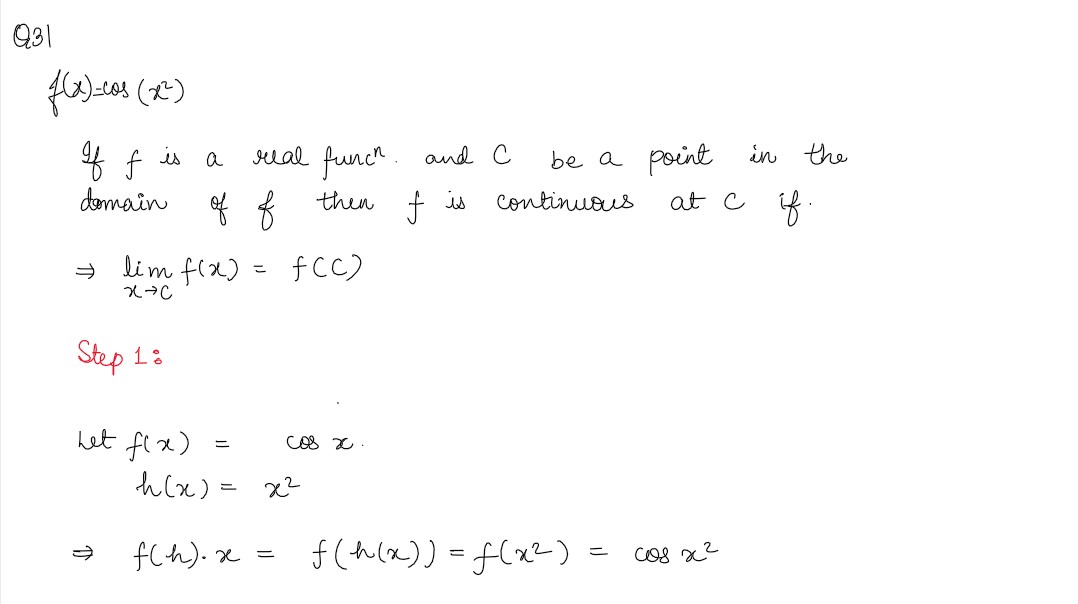 Q31
f(x)=cos (x²)
If f is a real funcⁿ. and C be a point in the
domain of f then f is continuous at C if.
⇒ lim f(x) = f(C)
x→C
Step 1:
Let f(x) = cos x.
h(x) = x²
⇒ f(h). x = f(h(x)) = f(x²) = cos x²